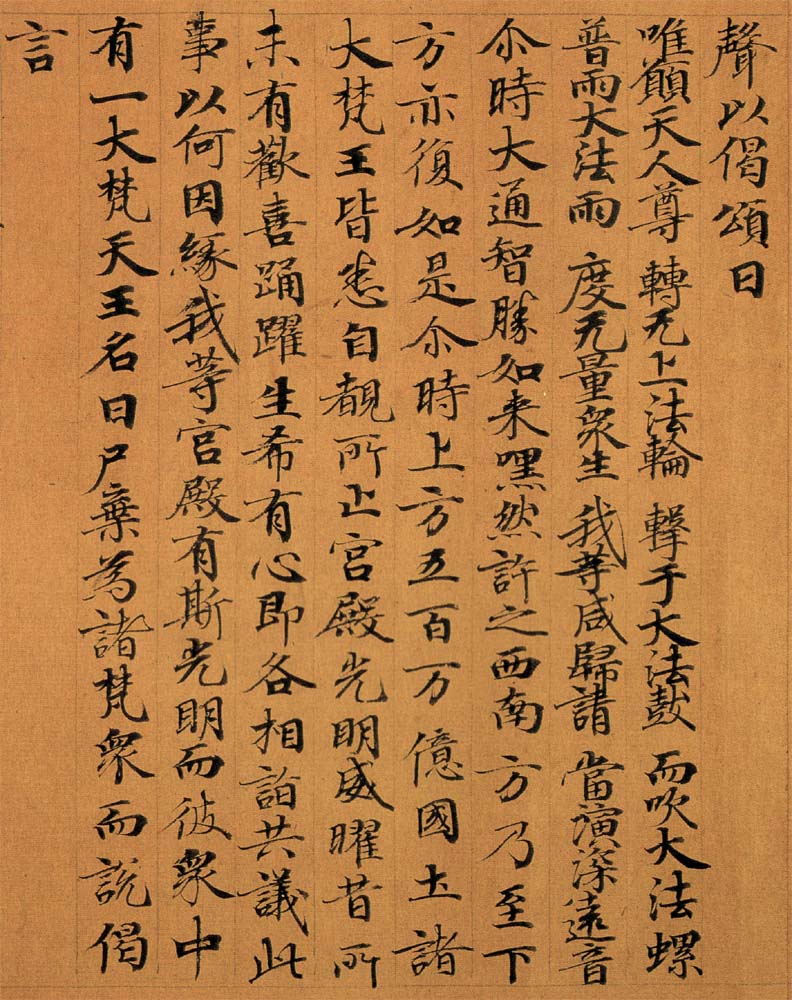 聲以偈頌曰
唯願天人尊 轉无上法輪 擊于大法鼓 而吹大法螺
普雨大法雨 度无量衆生 我等咸歸請 當演深遠音
尒時大通智勝如来嘿然許之西南方乃至下
方亦復如是尒時上方五百万億國土諸
大梵王皆悉自覩所止宮殿光明威曜昔所
未有歡喜踊躍生希有心即各相詣共議此
事以何因緣我等宮殿有斯光明而彼衆中
有一大梵天王名曰尸棄為諸梵衆而說偈
言